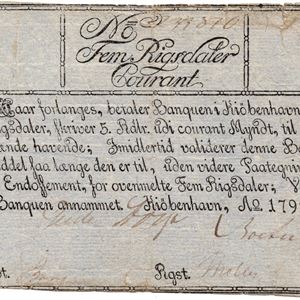 No
Fem Rigsdaler
Courant
Naar forlanges, betaler Banquen i Kiöbenhavn
igsdaler, skriver 5. Rdlr. udi courant Myndt, til
ande havende; Imidlertid validerer denne Ba
ddel saa længe den er til, uden videre Paategnin
Endossement, for ovenmelte Fem Rigsdaler; V
Banquen annammet. Kiöbenhavn, Ao 179
st. Rigst.